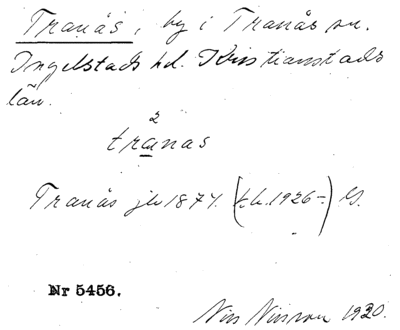 Tranås, by i Tranås sn.
Ingelstads hd. Kristianstads
län.
2
tranas
Tranås jlv 1874. (t.h. 1926-)
Nr 5456.
Nils Nilsson 1920.